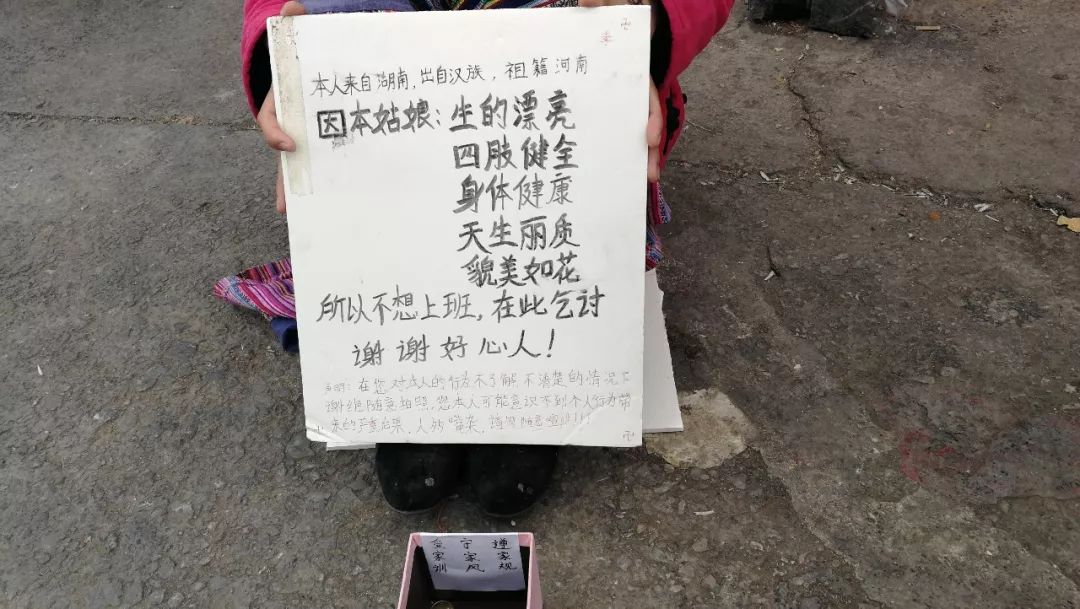 本人来自湖南，出自汉族，祖籍河南
因本姑娘：生的漂亮
四肢健全
身体健康
天生丽质
貌美如花
所以不想上班，在此乞讨
谢谢好心人！
在您对成人的行为不了解不清楚的情况下
谢绝随意拍照，您本人可能意识不到个人行为带
来的严重后果，人物嘈杂，请勿随意
遵家规
守家风
家训